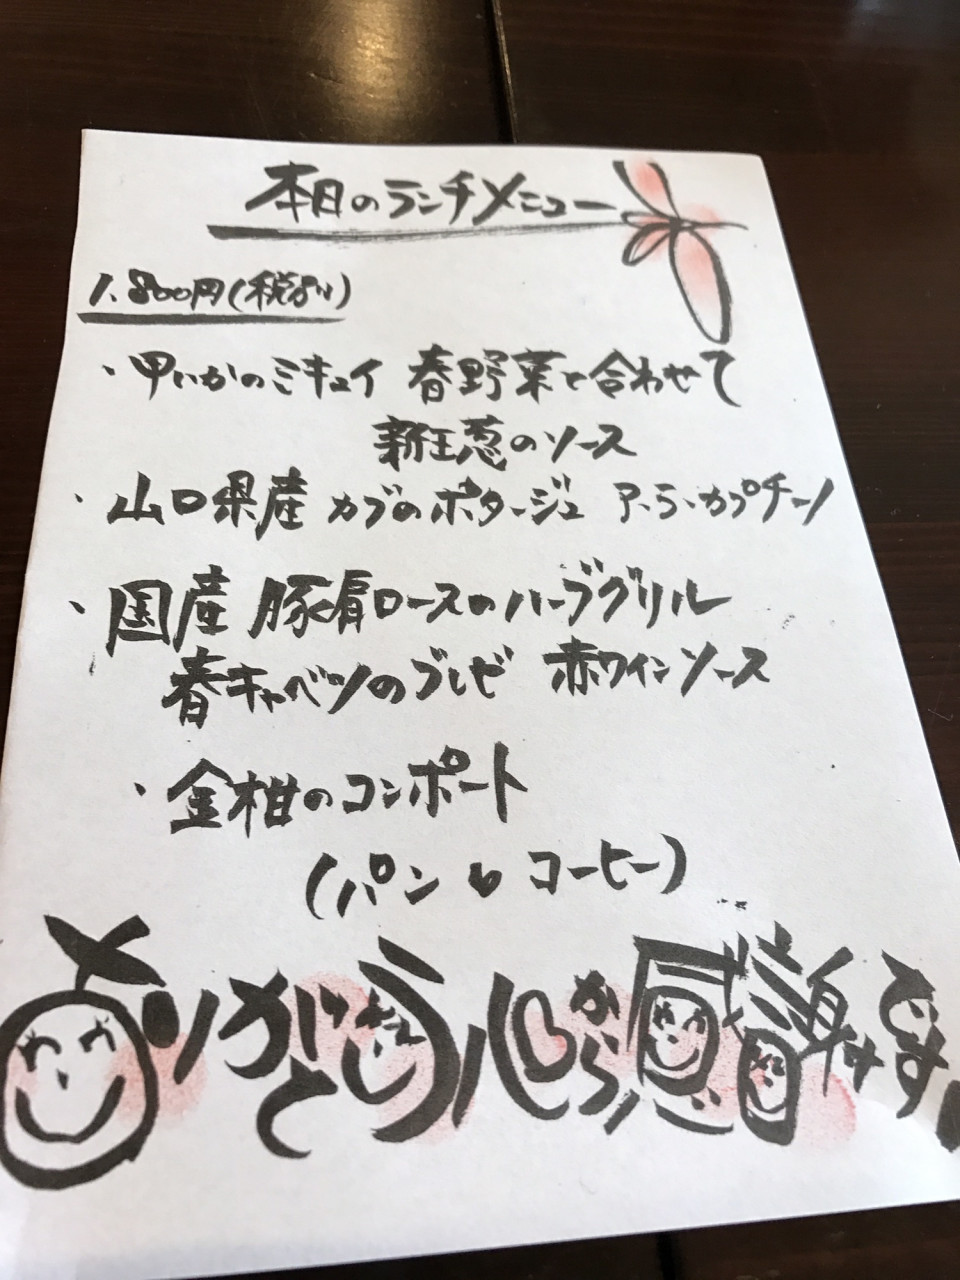 本日のランチメニュー
1,800円(税別)
・甲いかのミキュイ 春野菜と合わせて
新玉葱のソース
・山口県産 カブのポタージュ ア・ラ・カプチーノ
・国産 豚肩ロースのハーブグリル
春キャベツのブレゼ 赤ワインソース
・金柑のコンポート
(パン ・ コーヒー)
ありがとう 心から感謝です